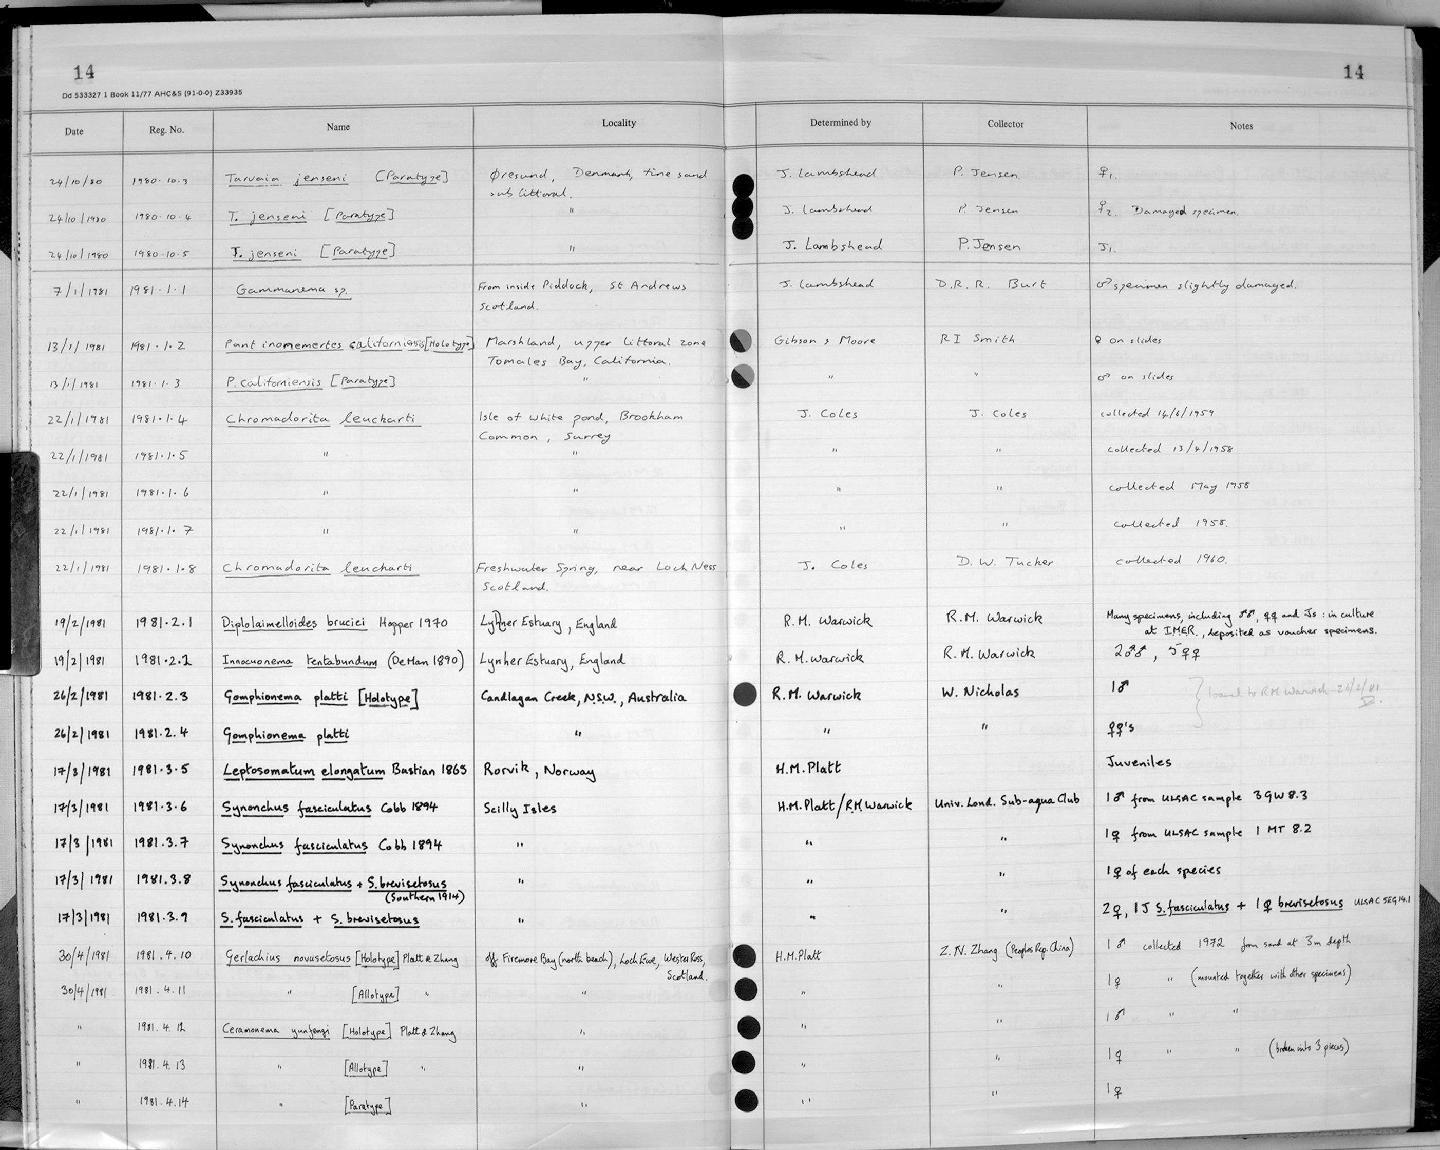 14 14
Dd 533327 1 Book 11/77 AHC&S (91-0-0) Z33935
Date Reg. No. Name Locality Determined by Collector Notes
24/10/80 1980.10.3 Tarvaia jenseni [Paratype] Øresund, Denmark, fine sand J. Lambshead P. Jensen ♀1.
sub littoral.
24/10/1980 1980.10.4 T. jenseni [Paratype] " J. Lambshead P. Jensen ♀2. Damaged specimen.
24/10/1980 1980.10.5 T. jenseni [Paratype] " J. Lambshead P. Jensen J1.
7/1/1981 1981.1.1 Gammanema sp. From inside Piddock, St Andrews J. Lambshead D.R.R. Burt ♂ specimen slightly damaged.
Scotland.
13/1/1981 1981.1.2 Pantinonemertes californiensis [Holotype] Marshland, upper littoral zone Gibson & Moore R I Smith ♀ on slides
Tomales Bay, California.
13/1/1981 1981.1.3 P. californiensis [Paratype] " " " ♂ on slides
22/1/1981 1981.1.4 Chromadorita leuckarti Isle of White pond, Brookham J. Coles J. Coles collected 14/6/1959
Common, Surrey
22/1/1981 1981.1.5 " " " " collected 13/4/1958
22/1/1981 1981.1.6 " " " " collected May 1958
22/1/1981 1981.1.7 " " " " collected 1958.
22/1/1981 1981.1.8 Chromadorita leuckarti Freshwater Spring, near Loch Ness J. Coles D.W. Tucker collected 1960.
Scotland.
19/2/1981 1981.2.1 Diplolaimelloides bruciei Hopper 1970 Lynher Estuary, England R.M. Warwick R.M. Warwick Many specimens, including ♂♂, ♀♀ and Js : in culture
at IMER, deposited as voucher specimens.
19/2/1981 1981.2.2 Innocuonema tentabundum (De Man 1890) Lynher Estuary, England R.M. Warwick R.M. Warwick 2♂♂, 5♀♀
26/2/1981 1981.2.3 Gomphionema platti [Holotype] Candlagan Creek, N.S.W., Australia R.M. Warwick W. Nicholas 1♂ loaned to R.M. Warwick
26/2/1981 1981.2.4 Gomphionema platti " " " ♀♀'s
17/3/1981 1981.3.5 Leptosomatum elongatum Bastian 1865 Rorvik, Norway H.M. Platt Juveniles
17/3/1981 1981.3.6 Synonchus fasciculatus Cobb 1894 Scilly Isles H.M. Platt/R.M. Warwick Univ. Lond. Sub-aqua Club 1♂ from ULSAC sample 3 GW 8.3
17/3/1981 1981.3.7 Synonchus fasciculatus Cobb 1894 " " " 1♀ from ULSAC sample 1 MT 8.2
17/3/1981 1981.3.8 Synonchus fasciculatus + S. brevisetosus " " " 1♀ of each species
(Southern 1914)
17/3/1981 1981.3.9 S. fasciculatus + S. brevisetosus " " " 2♀, 1J S. fasciculatus + 1♀ brevisetosus ULSAC 5EG 14.1
30/4/1981 1981.4.10 Gerlachius novusetosus [Holotype] Platt & Zhang off Firemore Bay (north beach), Loch Ewe, Wester Ross, H.M. Platt Z.N. Zhang (Peoples Rep. China) 1♂ collected 1972 from sand at 3m depth
Scotland.
30/4/1981 1981.4.11 " [Allotype] " " " " 1♀ " (mounted together with other specimens)
" 1981.4.12 Ceramonema yunfengi [Holotype] Platt & Zhang " " " 1♂ " "
" 1981.4.13 " [Allotype] " " " " 1♀ " " (broken into 3 pieces)
" 1981.4.14 " [Paratype] " " " 1♀